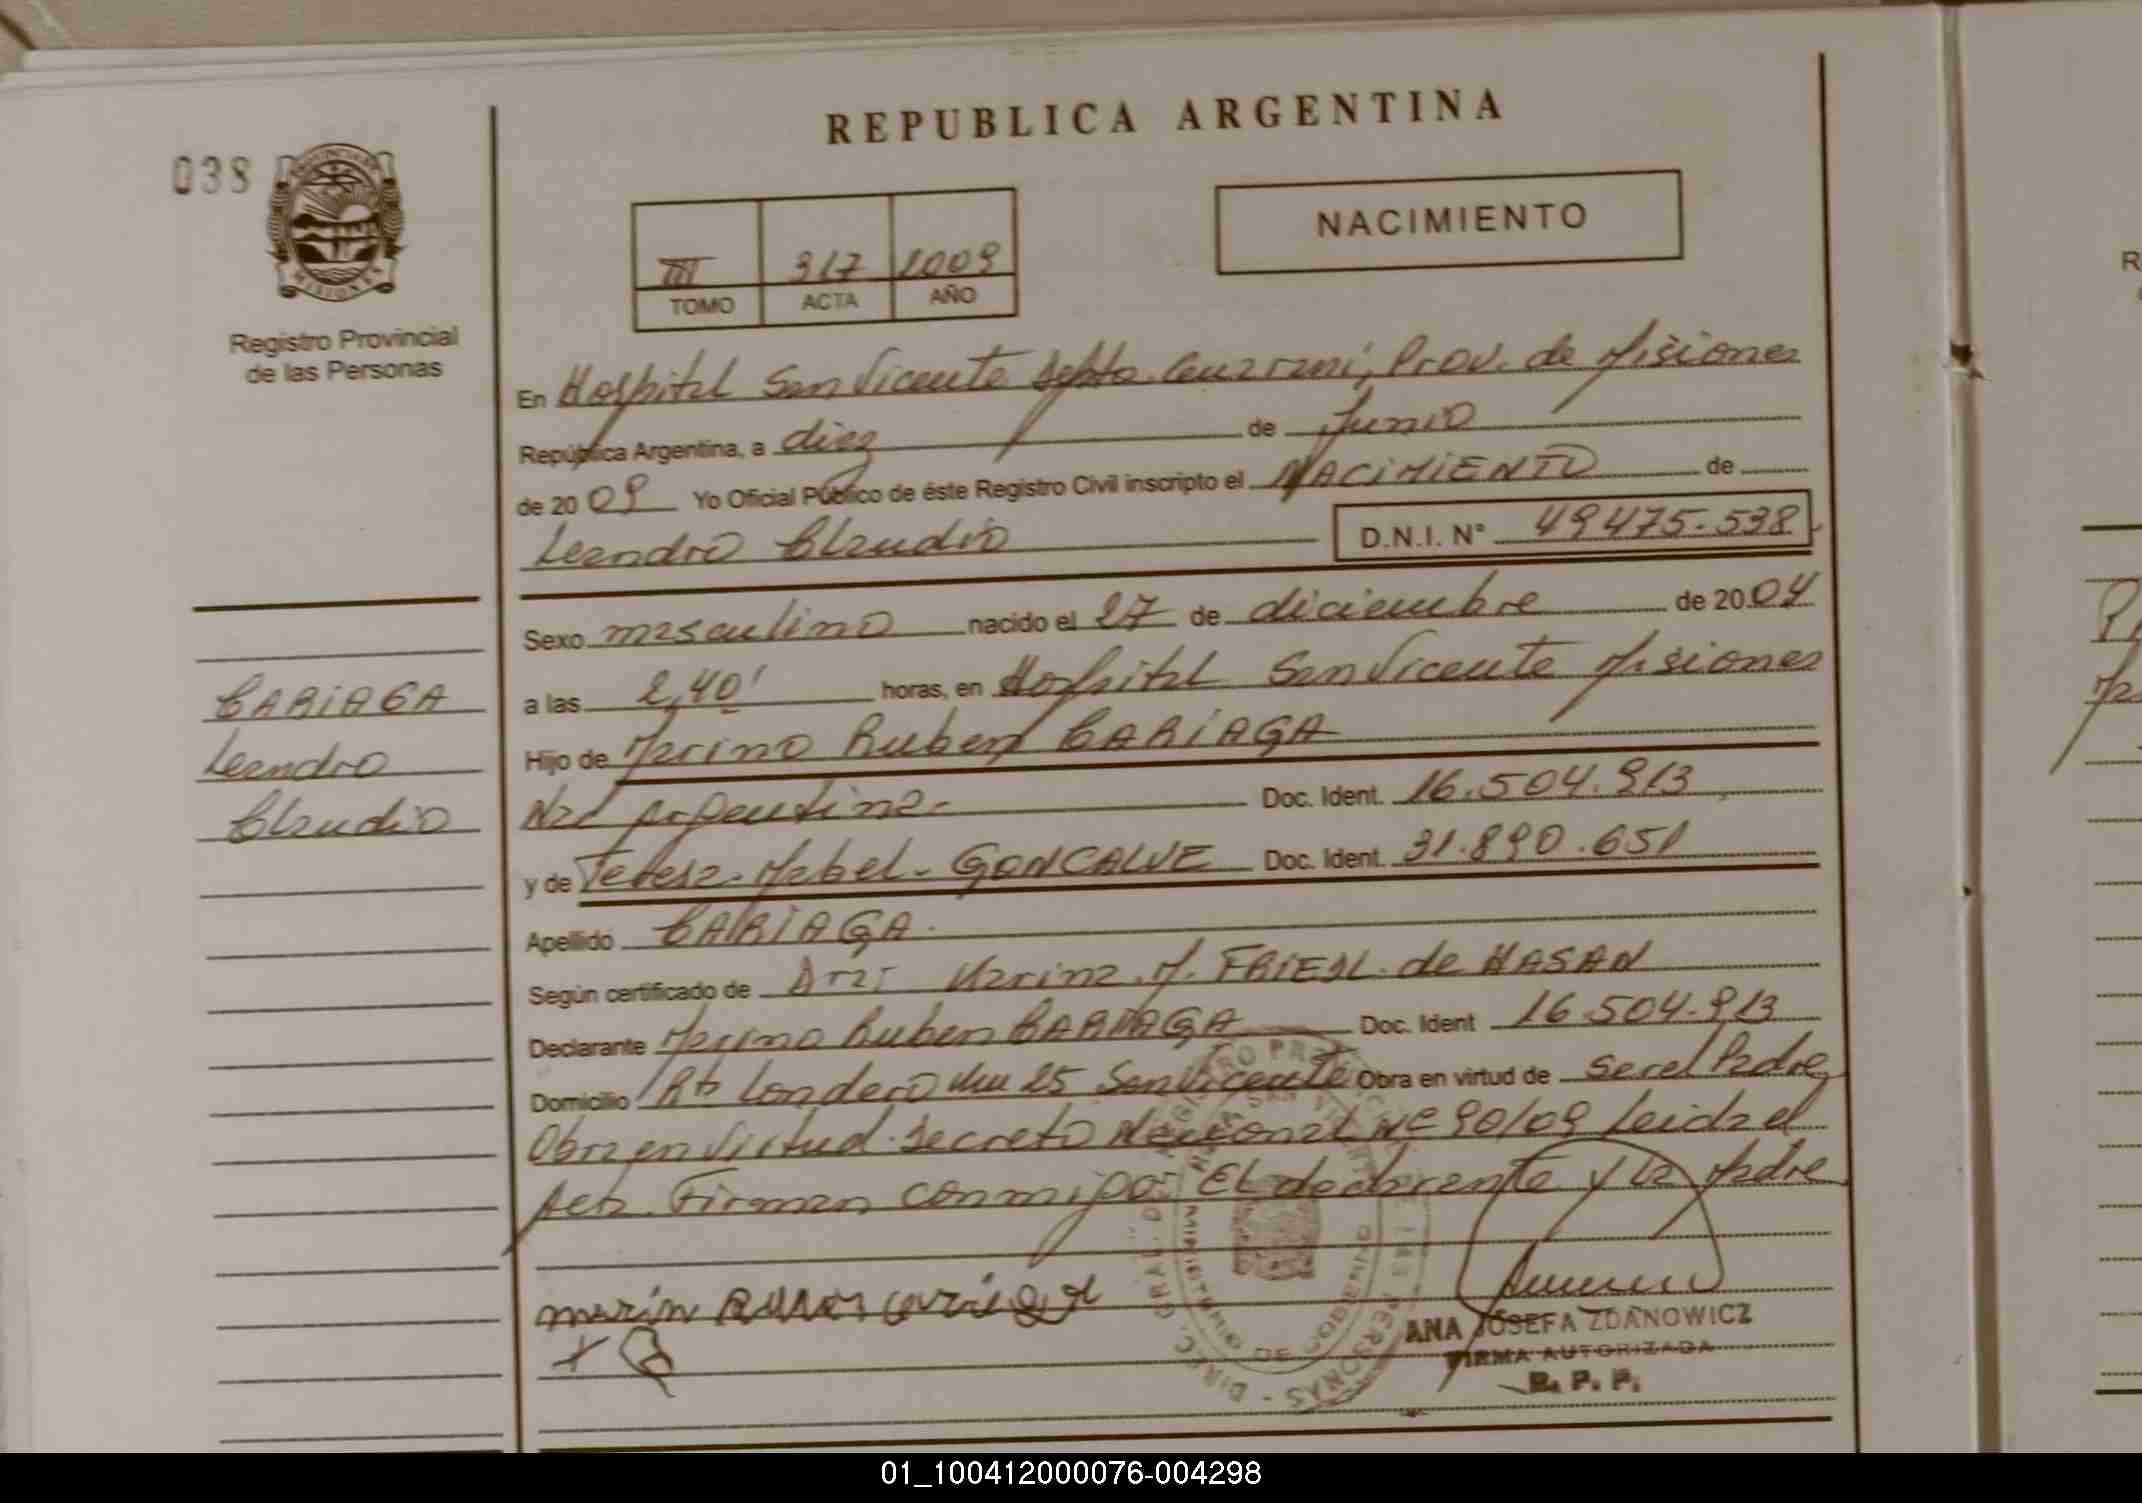 REPUBLICA ARGENTINA
038
NACIMIENTO
III 317 2009
TOMO ACTA AÑO
Registro Provincial
de las Personas
En Hospital San Vicente Dpto. Guarani, Prov. de Misiones
República Argentina, a diez de Junio
de 2009 Yo Oficial Público de éste Registro Civil inscripto el NACIMIENTO de
Leandro Claudio D.N.I. N° 49475.538
Sexo masculino nacido el 27 de diciembre de 2004
a las 2,40' horas, en Hospital San Vicente Misiones
Hijo de Marino Ruben CARIAGA
Nac Argentina Doc. Ident. 16.504.913
y de Teresa Mabel GONCALVE Doc. Ident. 31.890.651
Apellido CARIAGA
Según certificado de Dra. Marina M. de HASAN
Declarante Marino Ruben CARIAGA Doc. Ident 16.504.913
Domicilio Londero km 25 San Vicente Obra en virtud de ser el Padre
Obra en Virtud Decreto Nacional N° 90/09 Leida el
Acta Firman conmigo El declarante y la Madre
CARIAGA
Leandro
Claudio
ANA JOSEFA ZDANOWICZ
FIRMA AUTORIZADA
R. P. P.
01_100412000076-004298